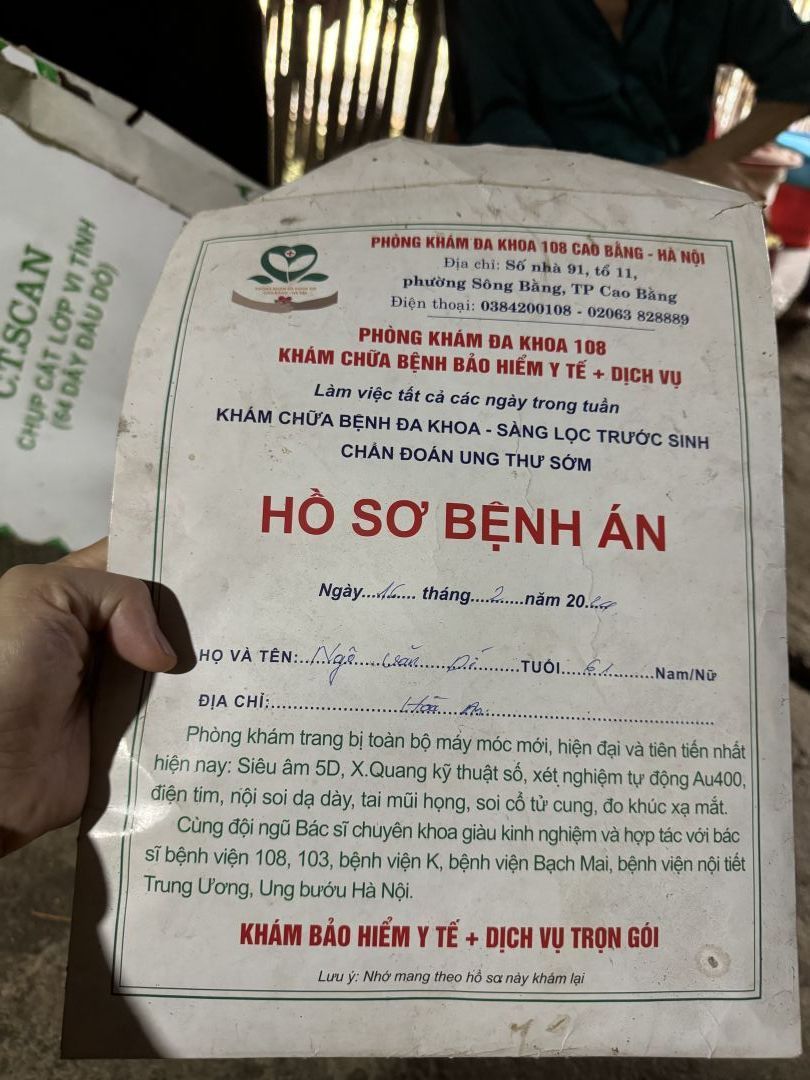 C.T.SCAN
CHỤP CẮT LỚP VI TÍNH
(64 DÃY ĐẦU DÒ)
PHÒNG KHÁM ĐA KHOA 108 CAO BẰNG - HÀ NỘI
Địa chỉ: Số nhà 91, tổ 11,
phường Sông Bằng, TP Cao Bằng
Điện thoại: 0384200108 - 02063 828889
PHÒNG KHÁM ĐA KHOA 108
KHÁM CHỮA BỆNH BẢO HIỂM Y TẾ + DỊCH VỤ
Làm việc tất cả các ngày trong tuần
KHÁM CHỮA BỆNH ĐA KHOA - SÀNG LỌC TRƯỚC SINH
CHẨN ĐOÁN UNG THƯ SỚM
HỒ SƠ BỆNH ÁN
Ngày....16.... tháng...2.....năm 20....
HỌ VÀ TÊN:...Ngô...văn.......TUỔI....61.......Nam/Nữ
ĐỊA CHỈ:....................Hòa An....................
Phòng khám trang bị toàn bộ máy móc mới, hiện đại và tiên tiến nhất
hiện nay: Siêu âm 5D, X.Quang kỹ thuật số, xét nghiệm tự động Au400,
điện tim, nội soi dạ dày, tai mũi họng, soi cổ tử cung, đo khúc xạ mắt.
Cùng đội ngũ Bác sĩ chuyên khoa giàu kinh nghiệm và hợp tác với bác
sĩ bệnh viện 108, 103, bệnh viện K, bệnh viện Bạch Mai, bệnh viện nội tiết
Trung Ương, Ung bướu Hà Nội.
KHÁM BẢO HIỂM Y TẾ + DỊCH VỤ TRỌN GÓI
Lưu ý: Nhớ mang theo hồ sơ này khám lại